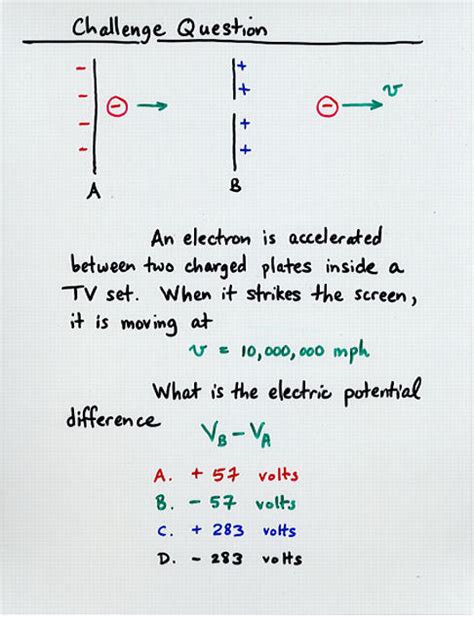 Challenge Question
- +
- +
- +
- +
- → - → v
A B
An electron is accelerated
between two charged plates inside a
TV set. When it strikes the screen,
it is moving at
v = 10,000,000 mph
What is the electric potential
difference
V_B - V_A
A. + 57 volts
B. - 57 volts
C. + 283 volts
D. - 283 volts